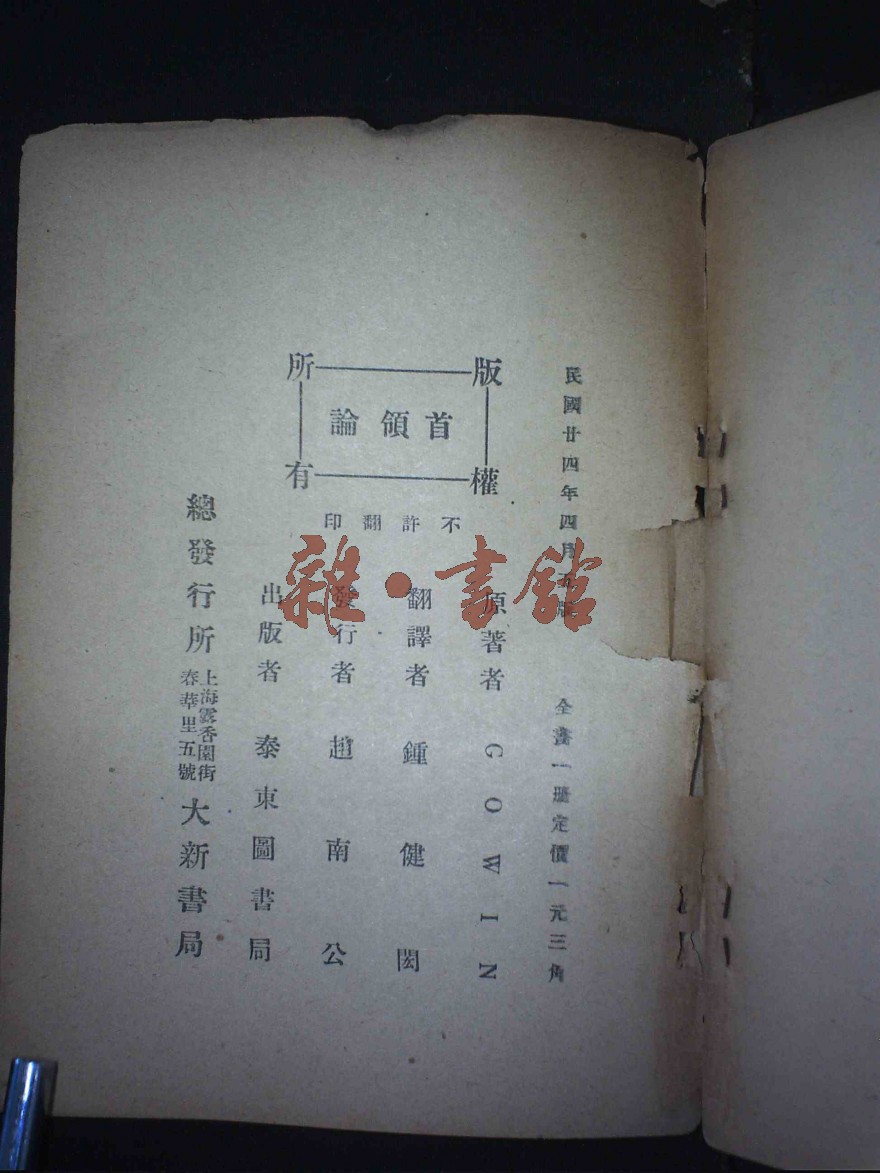 民國廿四年四月五版
全書一册定價一元三角
版權所有
首領論
不許翻印
原著者 GOWIN
翻譯者 鍾健閎
發行者 趙南公
出版者 泰東圖書局
總發行所 上海雲香園街春華里五號 大新書局
雜·書館